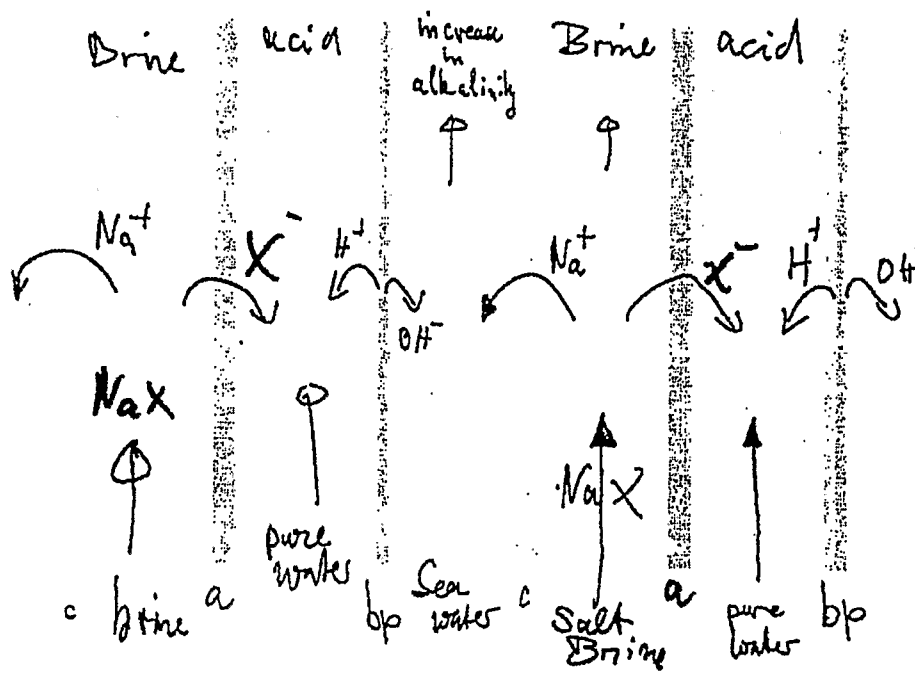 Brine
acid
increase
in
alkalinity
Brine
acid
Na+
X-
H+
OH-
Na+
X-
H+
OH
NaX
NaX
c
brine
a
pure
water
bp
Sea
water
c
Salt
Brine
a
pure
water
bp